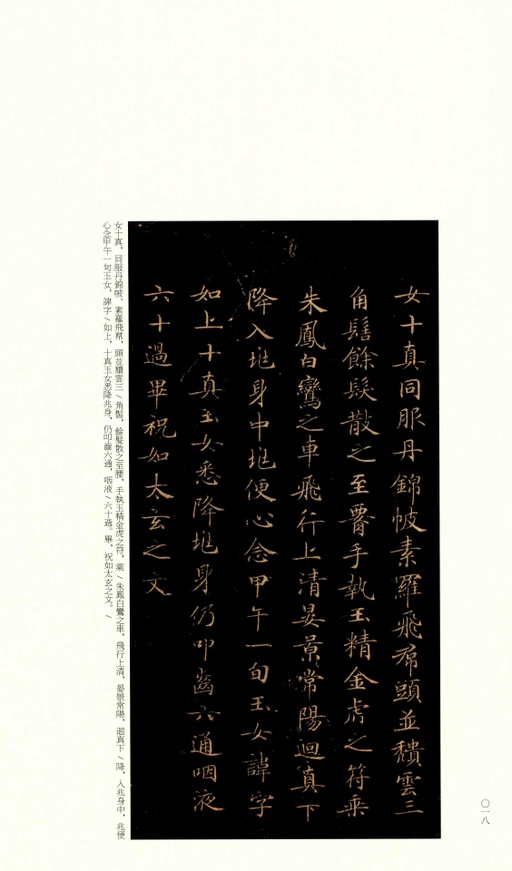 女十真同服丹錦帔素羅飛帬頭並穨雲三
角髻餘髮散之至腰手執玉精金虎之符乘
朱鳳白鸞之車飛行上清晏景常陽迴真下
降入兆身中兆便心念甲午一旬玉女諱字
如上十真玉女悉降兆身仍叩齒六通咽液
六十過畢祝如太玄之文
女十真，同服丹錦帔、素羅飛帬，頭並穨雲三\角髻，餘髮散之至腰，手執玉精金虎之符，乘\朱鳳白鸞之車，飛行上清，晏景常陽，迴真下\降，入兆身中，兆便
心念甲午一旬玉女，諱字\如上，十真玉女悉降兆身，仍叩齒六通，咽液\六十過。畢，祝如太玄之文。\
〇一八